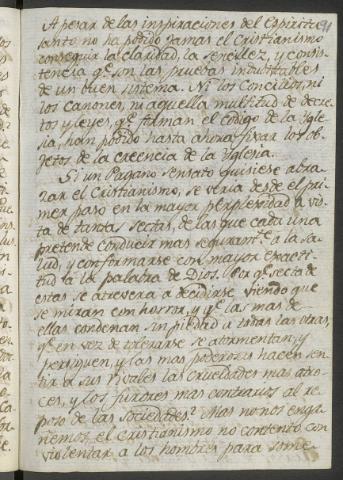 A pesar de las inspiraciones del Espiritu
Santo no ha podido jamas el Cristianismo
conseguir la claridad, la sencillez, y consis-
tencia qe. son las pruebas indubitables
de un buen sistema. Ni los Concilios, ni
los canones, ni aquella multitud de decre-
tos y leyes, qe. forman el codigo de la Igle-
sia, han podido hasta ahora fixar los ob-
jetos de la creencia de la Iglesia.
Si un Pagano sensato quisiese abra-
zar el Cristianismo, se veria desde el pri-
mer paso en la mayor perplexidad a vis-
ta de tantas sectas, de las que cada una
pretende conducir mas seguramte. a la sa-
lud, y conformarse con mayor exacti-
tud a la palabra de Dios. Por qe. secta de
estas se atrevera a decidirse viendo que
se miran con horror, y qe. las mas de
ellas condenan sin piedad a todas las otras,
qe. en vez de tolerarse se atormentan, y
persiguen, y las mas poderosas hacen sen-
tir a sus rivales las crueldades mas atro-
ces, y los furores mas contrarios al re-
poso de las sociedades? Mas no nos enga-
ñemos, el Cristianismo no contento con
violentar a los hombres para some-